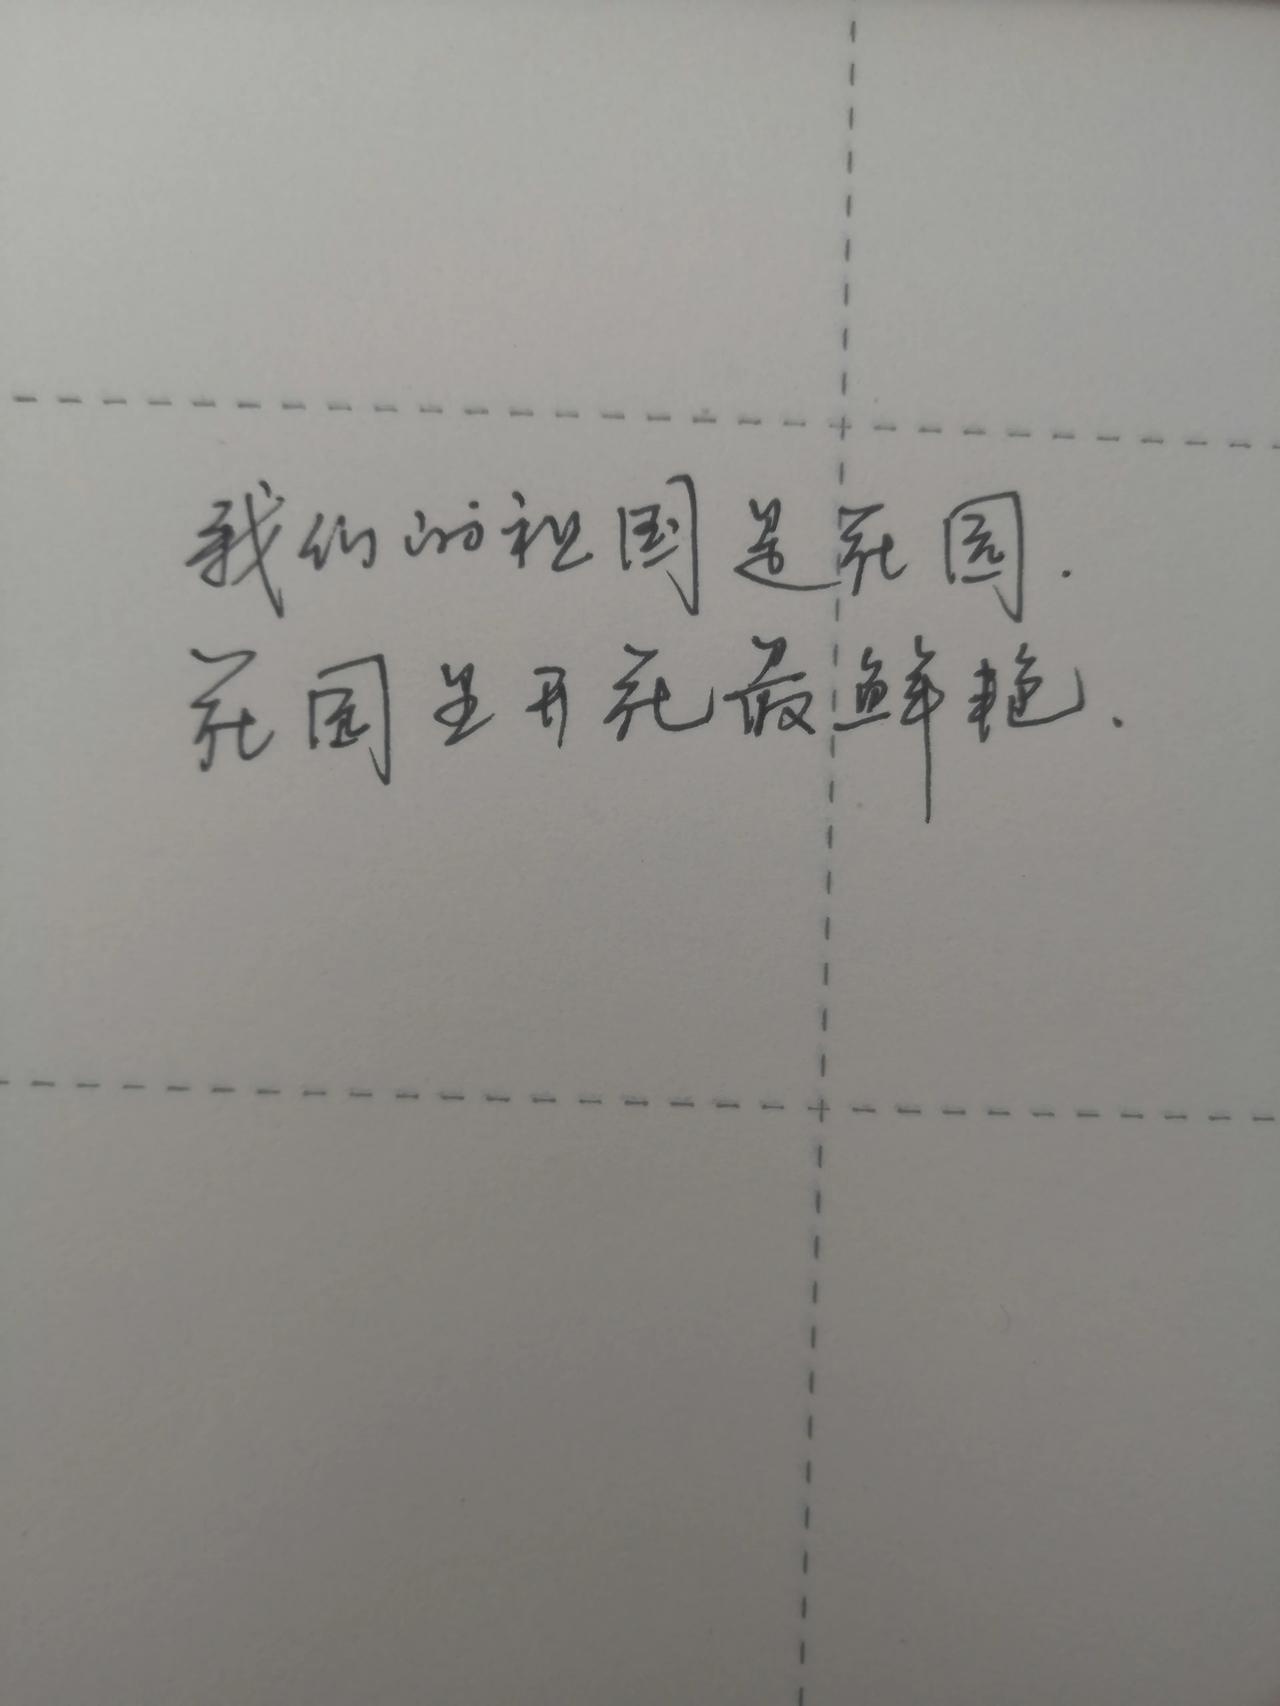 我们的祖国是花园.
花园里开花最鲜艳.